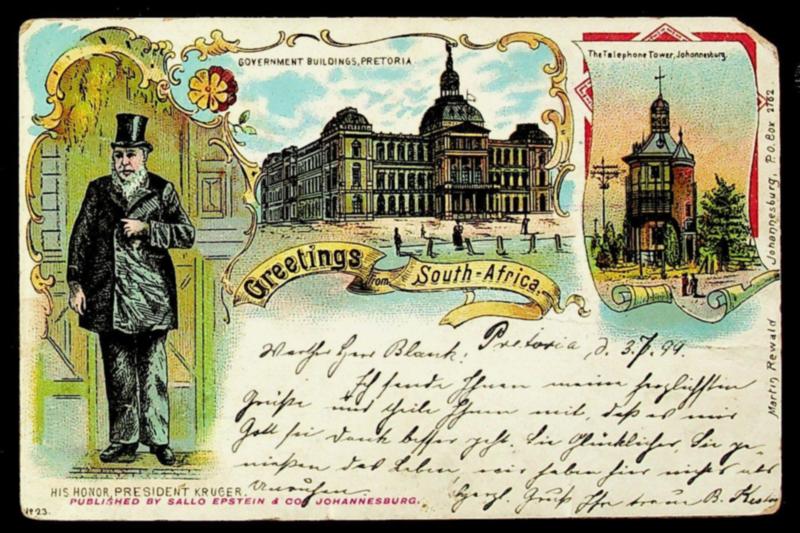 GOVERNMENT BUILDINGS, PRETORIA
The Telephone Tower, Johannesburg.
Greetings from South-Africa.
Werther Herr Blank! Pretoria, d. 3.7.99.
Ich sende Ihnen meine herzlichsten
Grüße und theile Ihnen mit, daß es mir
Gott sei Dank besser geht. Sie Glücklicher, Sie ge-
nießen das Leben, wir haben hier nichts als
Unruhen. Herzl. Gruß Ihr treuer B.
HIS HONOR, PRESIDENT KRUGER.
PUBLISHED BY SALLO EPSTEIN & CO. JOHANNESBURG.
No 23.
Martin Rewald Johannesburg, P.O. Box 2762